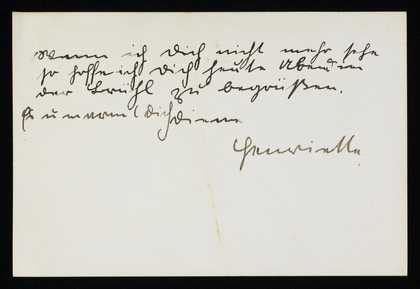 Wenn ich Dich nicht mehr sehe
so hoffe ich Dich heute Abend in
der Brühl zu begrüßen.
Es umarmt Dich Deine
Henriette